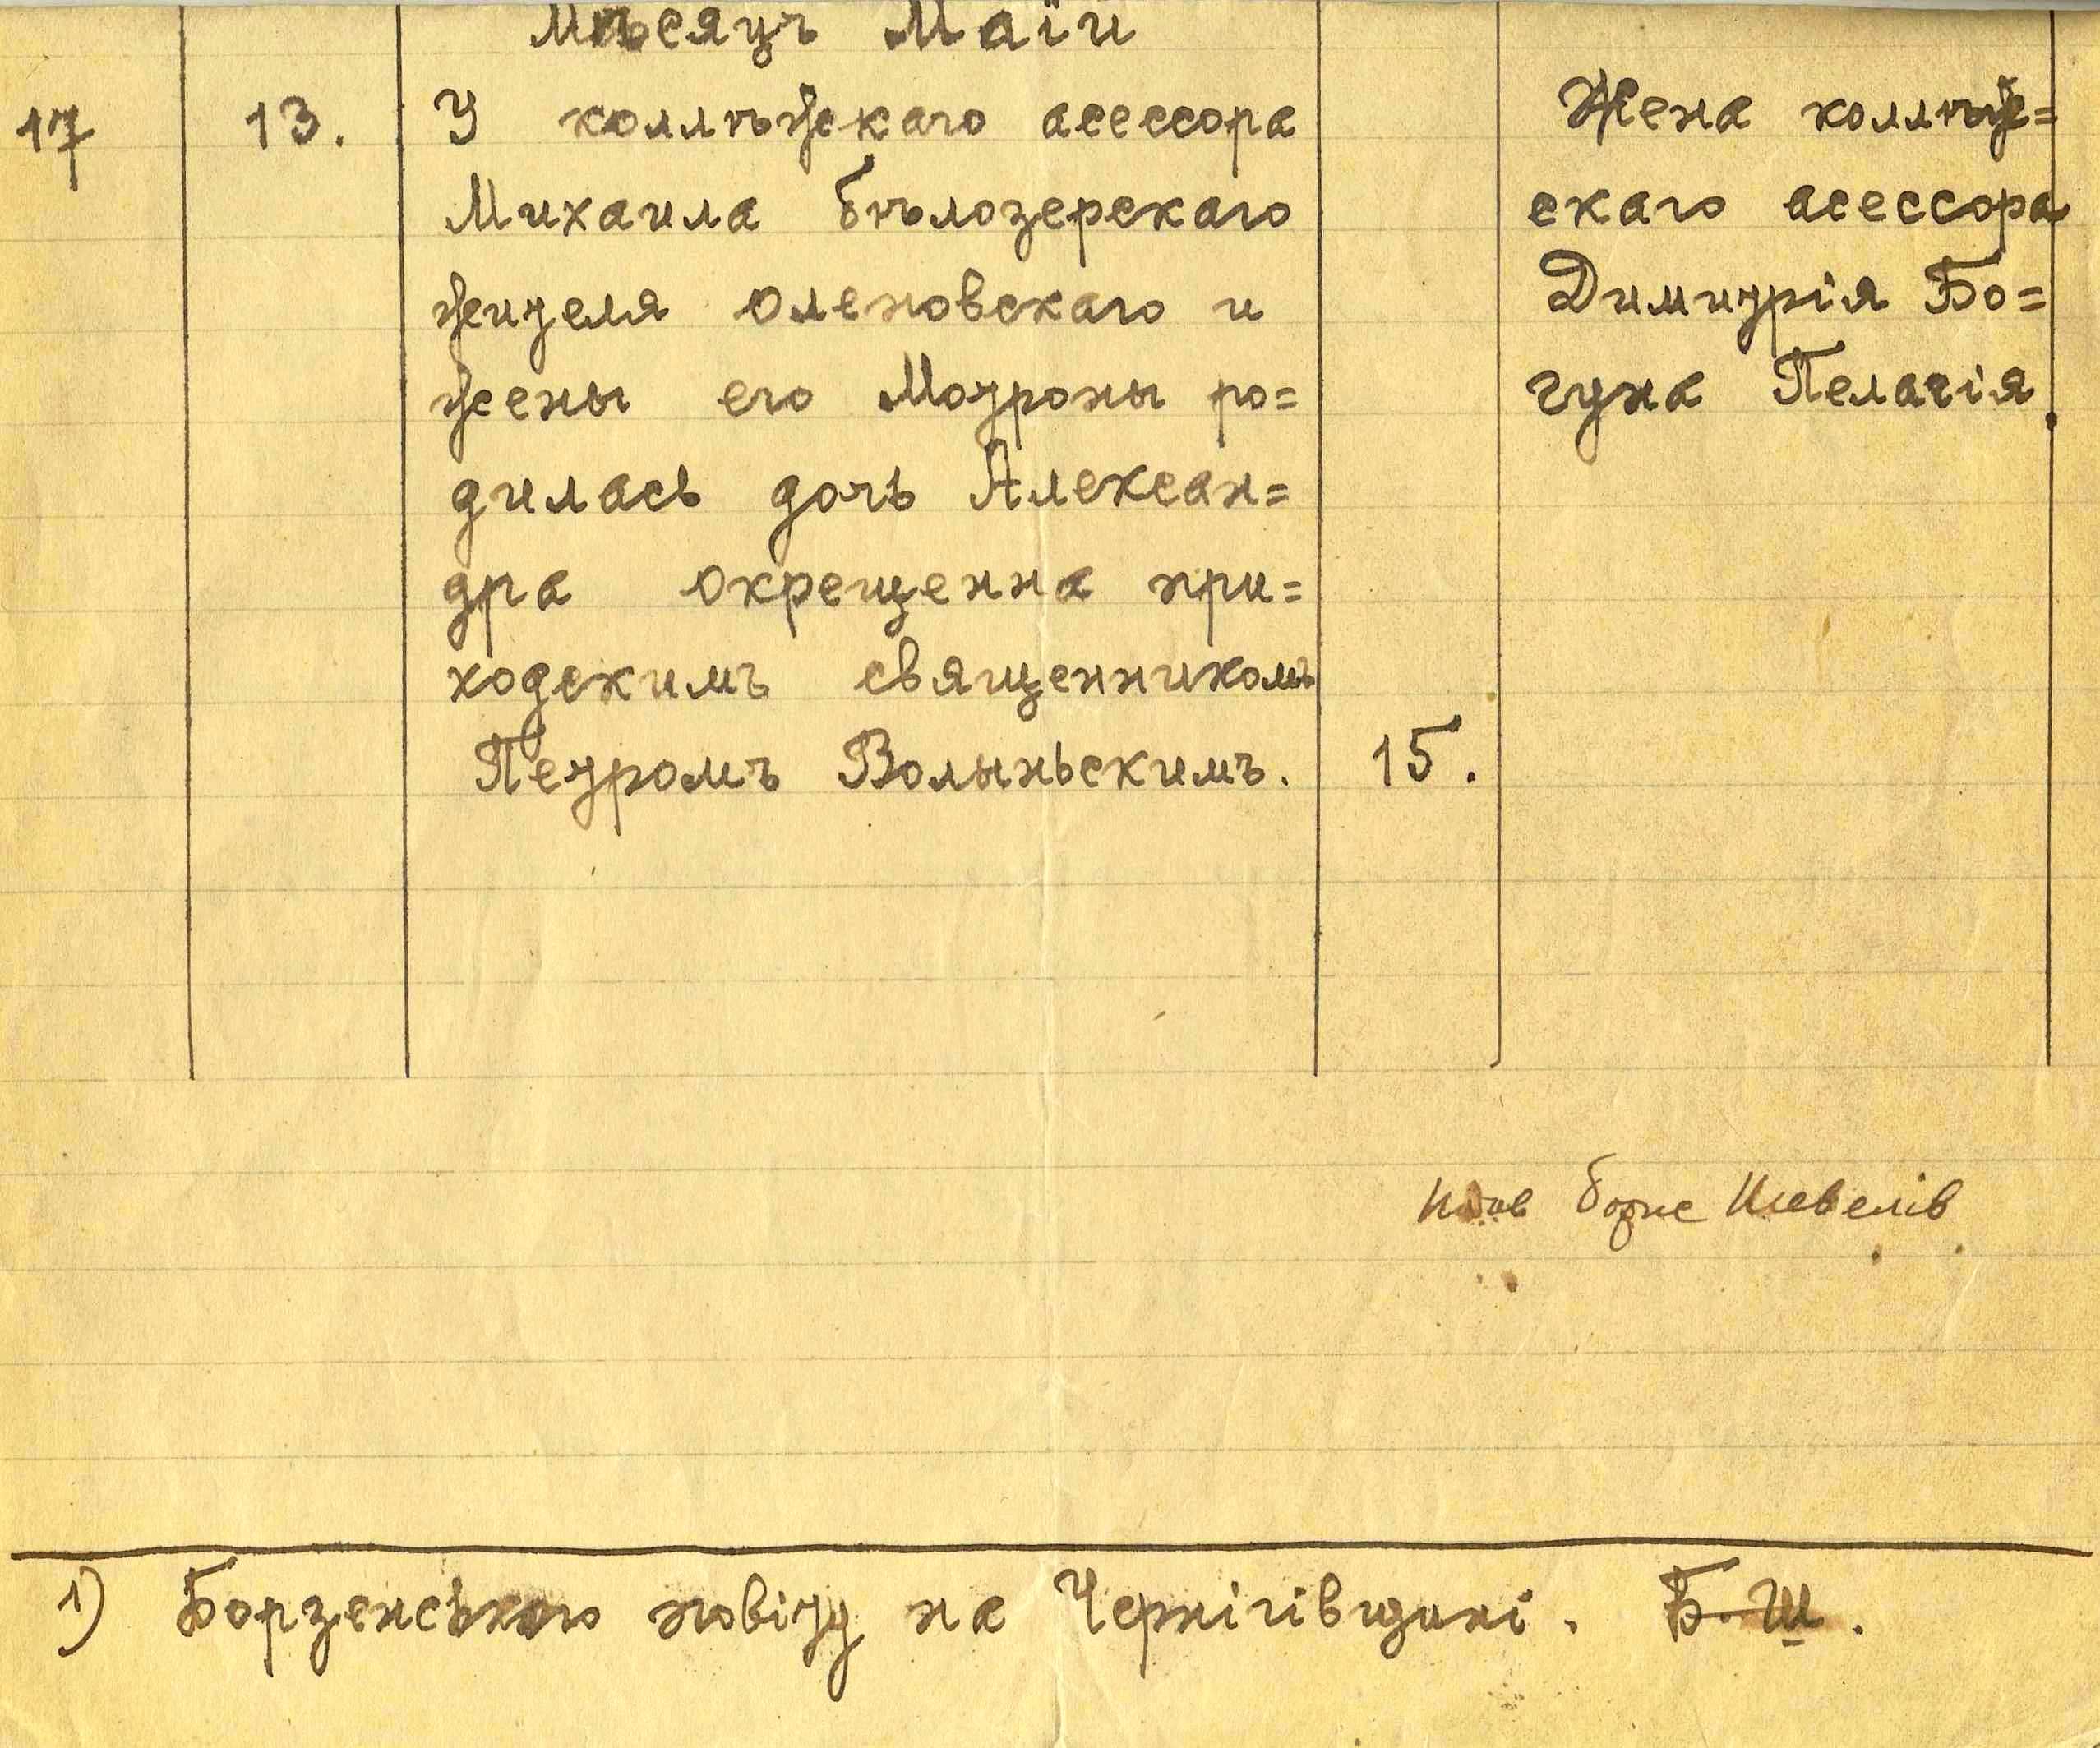 мѣсяцъ Маїй
17 13. У коллѣжскаго асессора
Михаила бѣлозерскаго
жителя оленовскаго и
жены его Мотроны ро=
дилась дочъ Алексан=
дра окрещенна при=
ходскимъ священникомъ
Петромъ Волыньскимъ. 15.
Жена коллѣж=
скаго асессора
Димитрія Бо=
гуна Пелагія.
Подав Борис Шевелів
1) Борзенського повіту на Чернігівщині. Б. Ш.